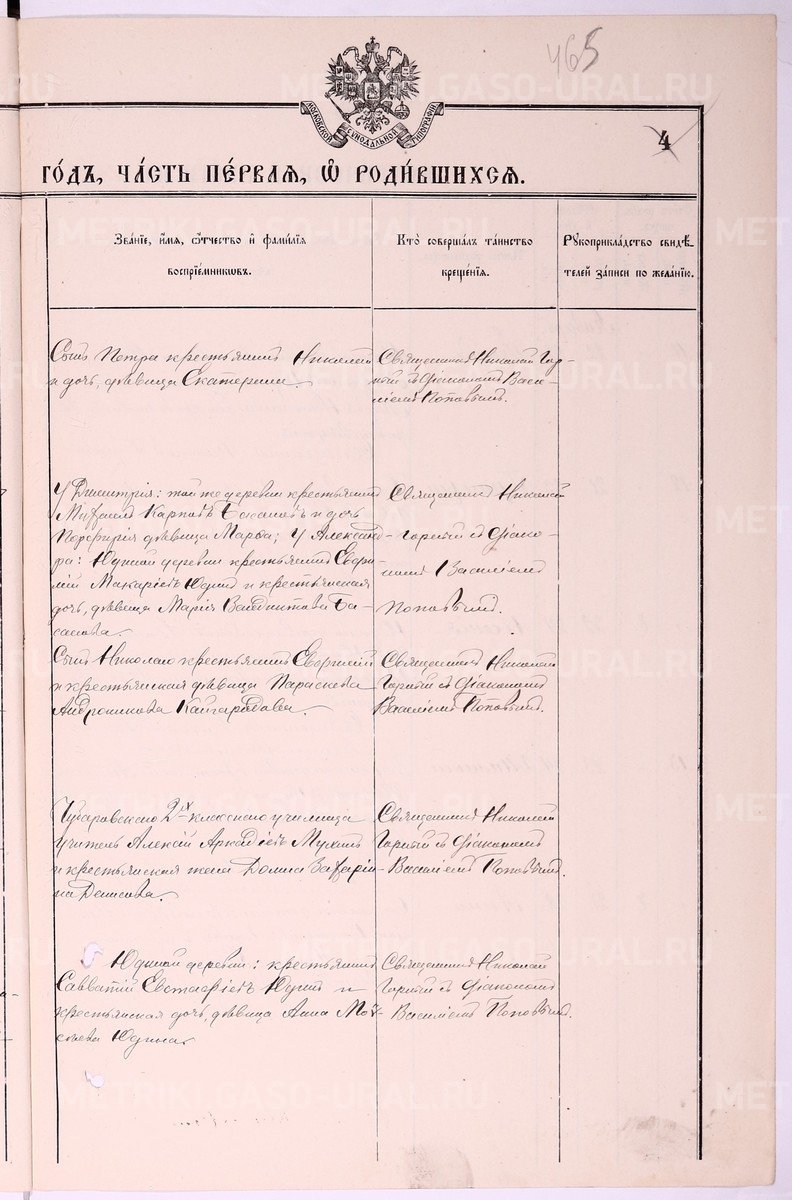 465
МОСКОВСКОЙ СѴНОДАЛЬНОЙ ТИПОГРАФІИ
4
ГО́ДЪ, ЧА́СТЬ ПЕ́РВАЯ, Ѡ҆ РОДИ́ВШИХСЯ.
Зва́нїе, и҆́мя, ѻ҆́тчество и҆ фами́лїя
воспрїе́мникѡвъ.
Кто̀ соверша́лъ та́инство
креще́нїя.
Рꙋкоприкла́дство свидѣ́-
телей за́писи по жела́нїю.
Сынъ Петра крестьянинъ Николай
и дочь, дѣвица Екатерина.
Священникъ Николай Гор-
ный съ діакономъ Васи-
ліемъ Поповымъ.
У Димитрія: той же деревни крестьянинъ
Михаилъ Карповъ и дочь
Порфирія дѣвица Марѳа; У Александ-
ра: Юдиной деревни крестьянинъ
Макаріевъ Юдинъ и крестьянская
дочь, дѣвица Марія Ба-
санова.
Священникъ Николай
Горный съ діако-
номъ Василіемъ
Поповымъ.
Сынъ Николая крестьянинъ
и крестьянская дѣвица Параскева
Андроникова Кайгородова.
Священникъ Николай
Горный съ діакономъ
Василіемъ Поповымъ.
Чубаровскаго 2х класснаго училища
учитель Алексій Аркадіевъ Мухинъ
и крестьянская жена Домна Захаріи-
на Денисова.
Священникъ Николай
Горный съ діакономъ
Василіемъ Поповымъ.
Юдиной деревни: крестьянинъ
Савватій Евстафіевъ Юдинъ и
крестьянская дочь, дѣвица Анна Мои-
сеева Юдина.
Священникъ Николай
Горный съ діакономъ
Василіемъ Поповымъ.
METRIKI.GASO-URAL.RU